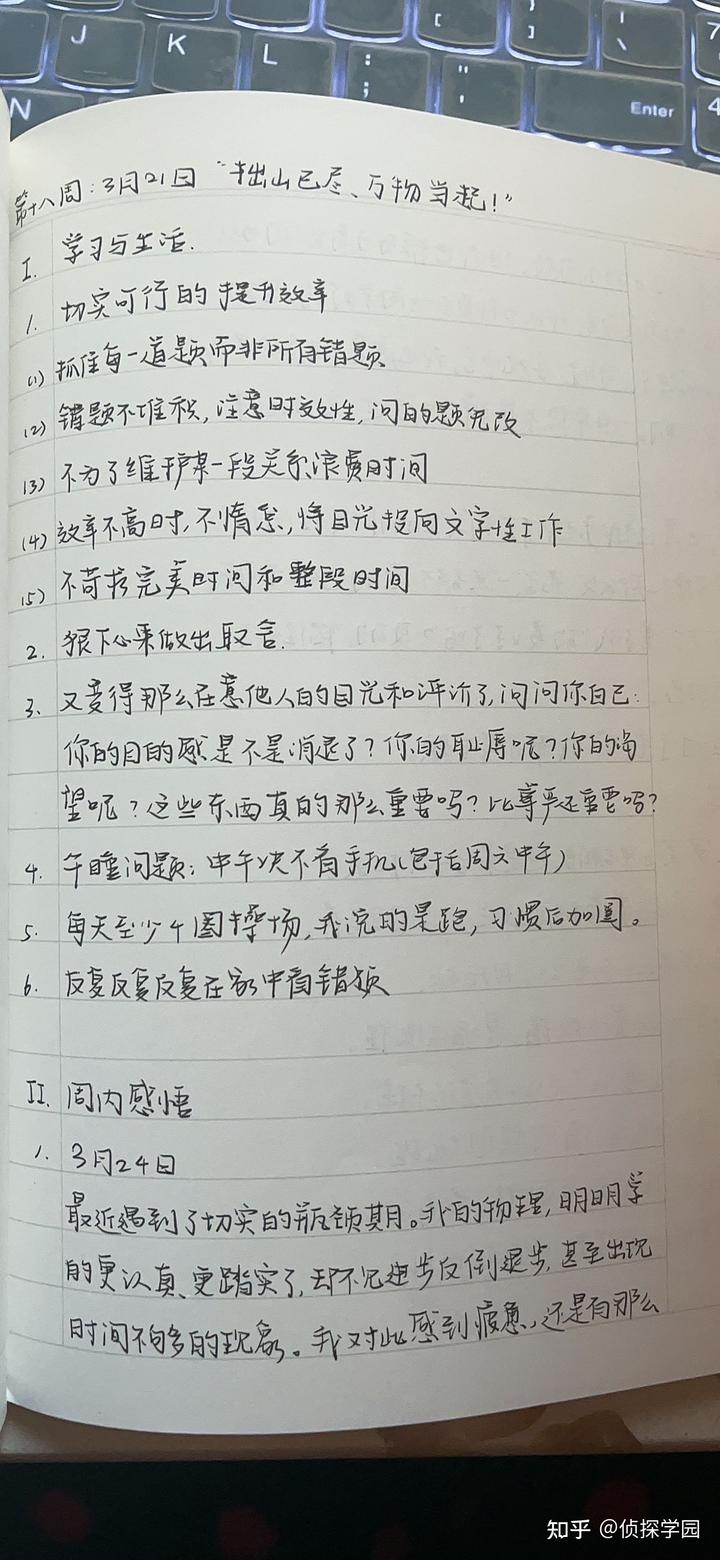 J
K
L
N
Enter
第十八周：3月21日 “拙山已尽、万物当起！”
I. 学习与生活.
1. 切实可行的提升效率
(1) 抓住每一道题而非所有错题
(2) 错题不堆积，注意时效性，问的题先改
(3) 不为了维护某一段关系浪费时间
(4) 效率不高时，不惰怠，将目光投向文字性工作
(5) 不苛求完美时间和整段时间
2. 狠下心来做出取舍.
3. 又变得那么在意他人的目光和评价了，问问你自己：
你的目的感是不是消退了？你的耻辱呢？你的渴
望呢？这些东西真的那么重要吗？比尊严还重要吗？
4. 午睡问题：中午决不看手机（包括周六中午）
5. 每天至少4圈操场，我说的是跑，习惯后加圈。
6. 反复反复反复在家中看错题
II. 周内感悟
1. 3月24日
最近遇到了切实的瓶颈期。我的物理，明明学
的更认真、更踏实了，却不见进步反倒退步，甚至出现
时间不够多的现象。我对此感到疲惫，还是有那么
知乎 @侦探学园